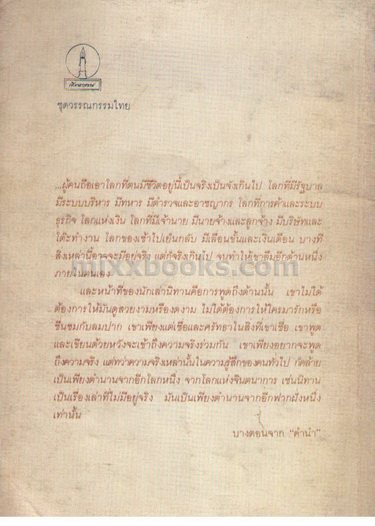 ชุดวรรณกรรมไทย
...ผู้คนถือเอาโลกที่ตนมีชีวิตอยู่นี้เป็นจริงเป็นจังเกินไป โลกที่มีรัฐบาล
มีระบบบริหาร มีทหาร มีตำรวจและอาชญากร โลกที่การค้าและระบบ
ธุรกิจ โลกแห่งเงิน โลกที่มีเจ้านาย มีนายจ้างและลูกจ้าง มีบริษัทและ
โต๊ะทำงาน โลกของเช้าไปเย็นกลับ มีเลื่อนขั้นและเงินเดือน บางที
สิ่งเหล่านี้อาจจะมีอยู่จริง แต่ก็จริงเกินไป จนทำให้เขาลืมอีกด้านหนึ่ง
ภายในตนเอง
และหน้าที่ของนักเล่านิทานคือการพูดถึงด้านนั้น เขาไม่ได้
ต้องการให้มันดูสวยงามหรืองดงาม ไม่ได้ต้องการให้ใครมารักหรือ
ชื่นชมกับลมปาก เขาเพียงแต่เชื่อและศรัทธาในสิ่งที่เขาเชื่อ เขาพูด
และเขียนด้วยหวังจะเข้าถึงความจริงร่วมกัน เขาเพียงอยากจะพูด
ถึงความจริง แต่ทว่าความจริงเหล่านั้นในความรู้สึกของคนทั่วไป ก็คล้าย
เป็นเพียงตำนานจากอีกโลกหนึ่ง จากโลกแห่งจินตนาการ เช่นนิทาน
เป็นเรื่องเล่าที่ไม่มีอยู่จริง มันเป็นเพียงตำนานจากอีกฟากฝั่งหนึ่ง
เท่านั้น
บางตอนจาก “คำนำ”